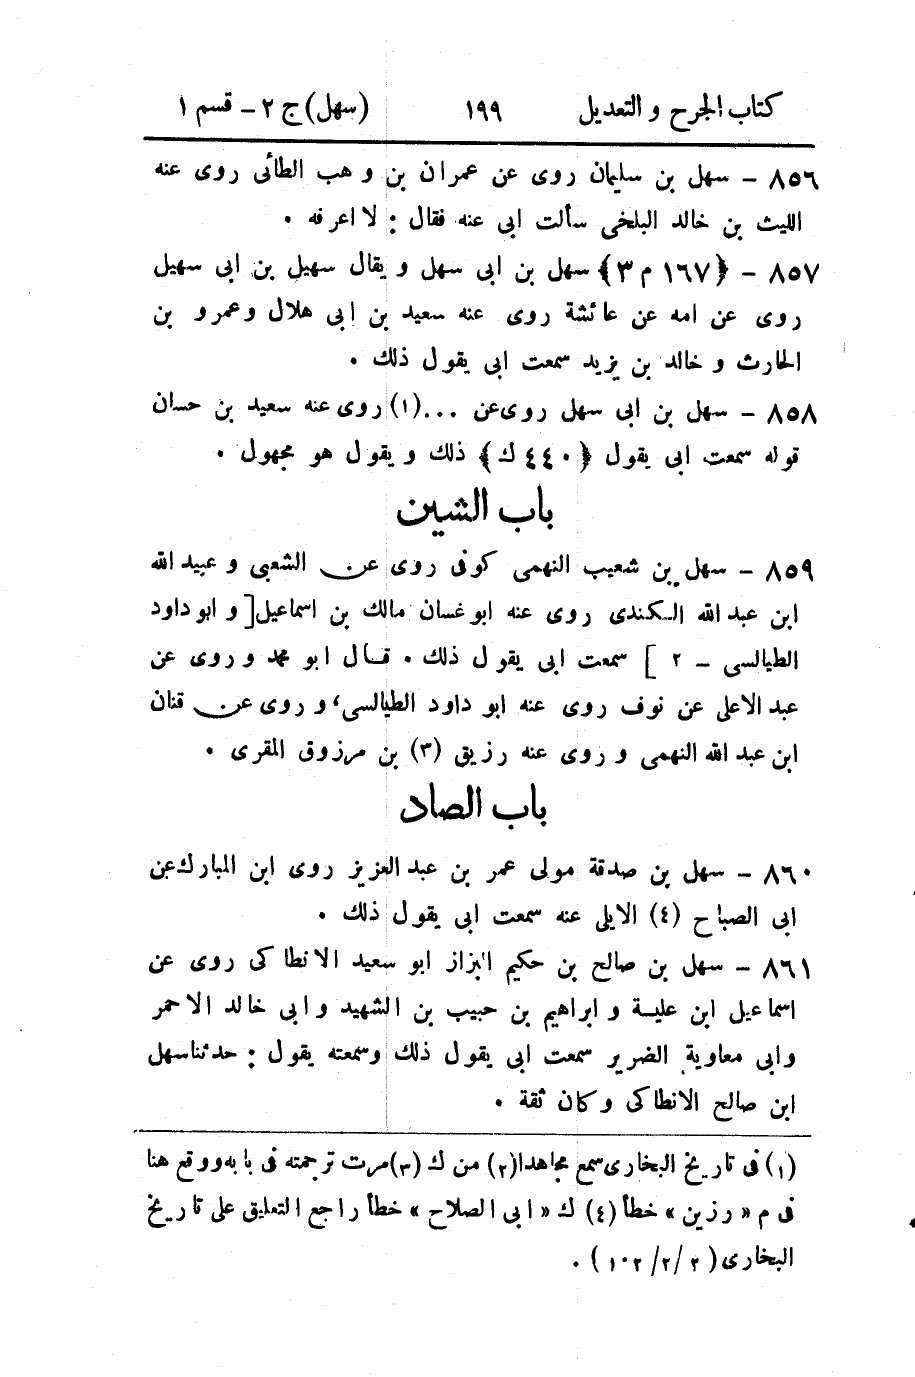 كتاب الجرح و التعديل ١٩٩ (سهل) ج ٢ – قسم ١
٨٥٦ – سهل بن سليمان روى عن عمران بن وهب الطائى روى عنه
الليث بن خالد البلخى سألت ابى عنه فقال : لا اعرفه .
٨٥٧ – ﴿١٦٧ م ٣﴾ سهل بن ابى سهل و يقال سهيل بن ابى سهيل
روى عن امه عن عائشة روى عنه سعيد بن ابى هلال وعمرو بن
الحارث و خالد بن يزيد سمعت ابى يقول ذلك .
٨٥٨ – سهل بن ابى سهل روى عن ...(١) روى عنه سعيد بن حسان
قوله سمعت ابى يقول ﴿٤٤٠ ك﴾ ذلك و يقول هو مجهول .
باب الشين
٨٥٩ – سهل بن شعيب النهمى كوفى روى عن الشعبى و عبيد الله
ابن عبد الله الكندى روى عنه ابو غسان مالك بن اسماعيل [و ابو داود
الطيالسى – ٢] سمعت ابى يقول ذلك . قال ابو محمد و روى عن
عبد الاعلى عن نوف روى عنه ابو داود الطيالسى، و روى عن قنان
ابن عبد الله النهمى و روى عنه رزيق (٣) بن مرزوق المقرى .
باب الصاد
٨٦٠ – سهل بن صدقة مولى عمر بن عبد العزيز روى ابن المبارك عن
ابى الصباح (٤) الايلى عنه سمعت ابى يقول ذلك .
٨٦١ – سهل بن صالح بن حكيم البزاز ابو سعيد الانطاكى روى عن
اسماعيل ابن علية و ابراهيم بن حبيب بن الشهيد و ابى خالد الاحمر
وابى معاوية الضرير سمعت ابى يقول ذلك وسمعته يقول : حدثنا سهل
ابن صالح الانطاكى وكان ثقة .
(١) فى تاريخ البخارى سمع مجاهدا (٢) من ك (٣) مرت ترجمته فى بابه ووقع هنا
فى م « رزين » خطأ (٤) ك « ابى الصلاح » خطأ راجع التعليق على تاريخ
البخارى (٢/٢/١٠٢) .